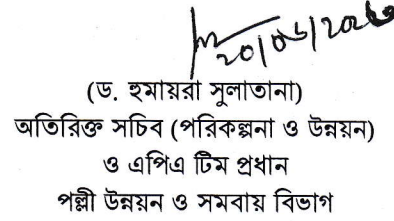 (ড. হুমায়রা সুলাতানা)
অতিরিক্ত সচিব (পরিকল্পনা ও উন্নয়ন)
ও এপিএ টিম প্রধান
পল্লী উন্নয়ন ও সমবায় বিভাগ